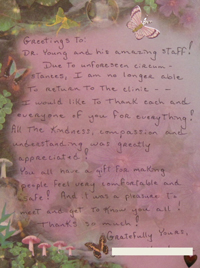 Greetings To:
Dr. Young and his amazing staff!
Due to unforeseen circum-
stances, I am no longer able
To return to The clinic --
I would like To Thank each and
everyone of you for everything!
All The kindness, compassion and
understanding was greatly
appreciated!
You all have a gift for making
people feel very comfortable and
safe! And it was a pleasure To
meet and get To know you all!
Thanks so much!
Gratefully Yours,